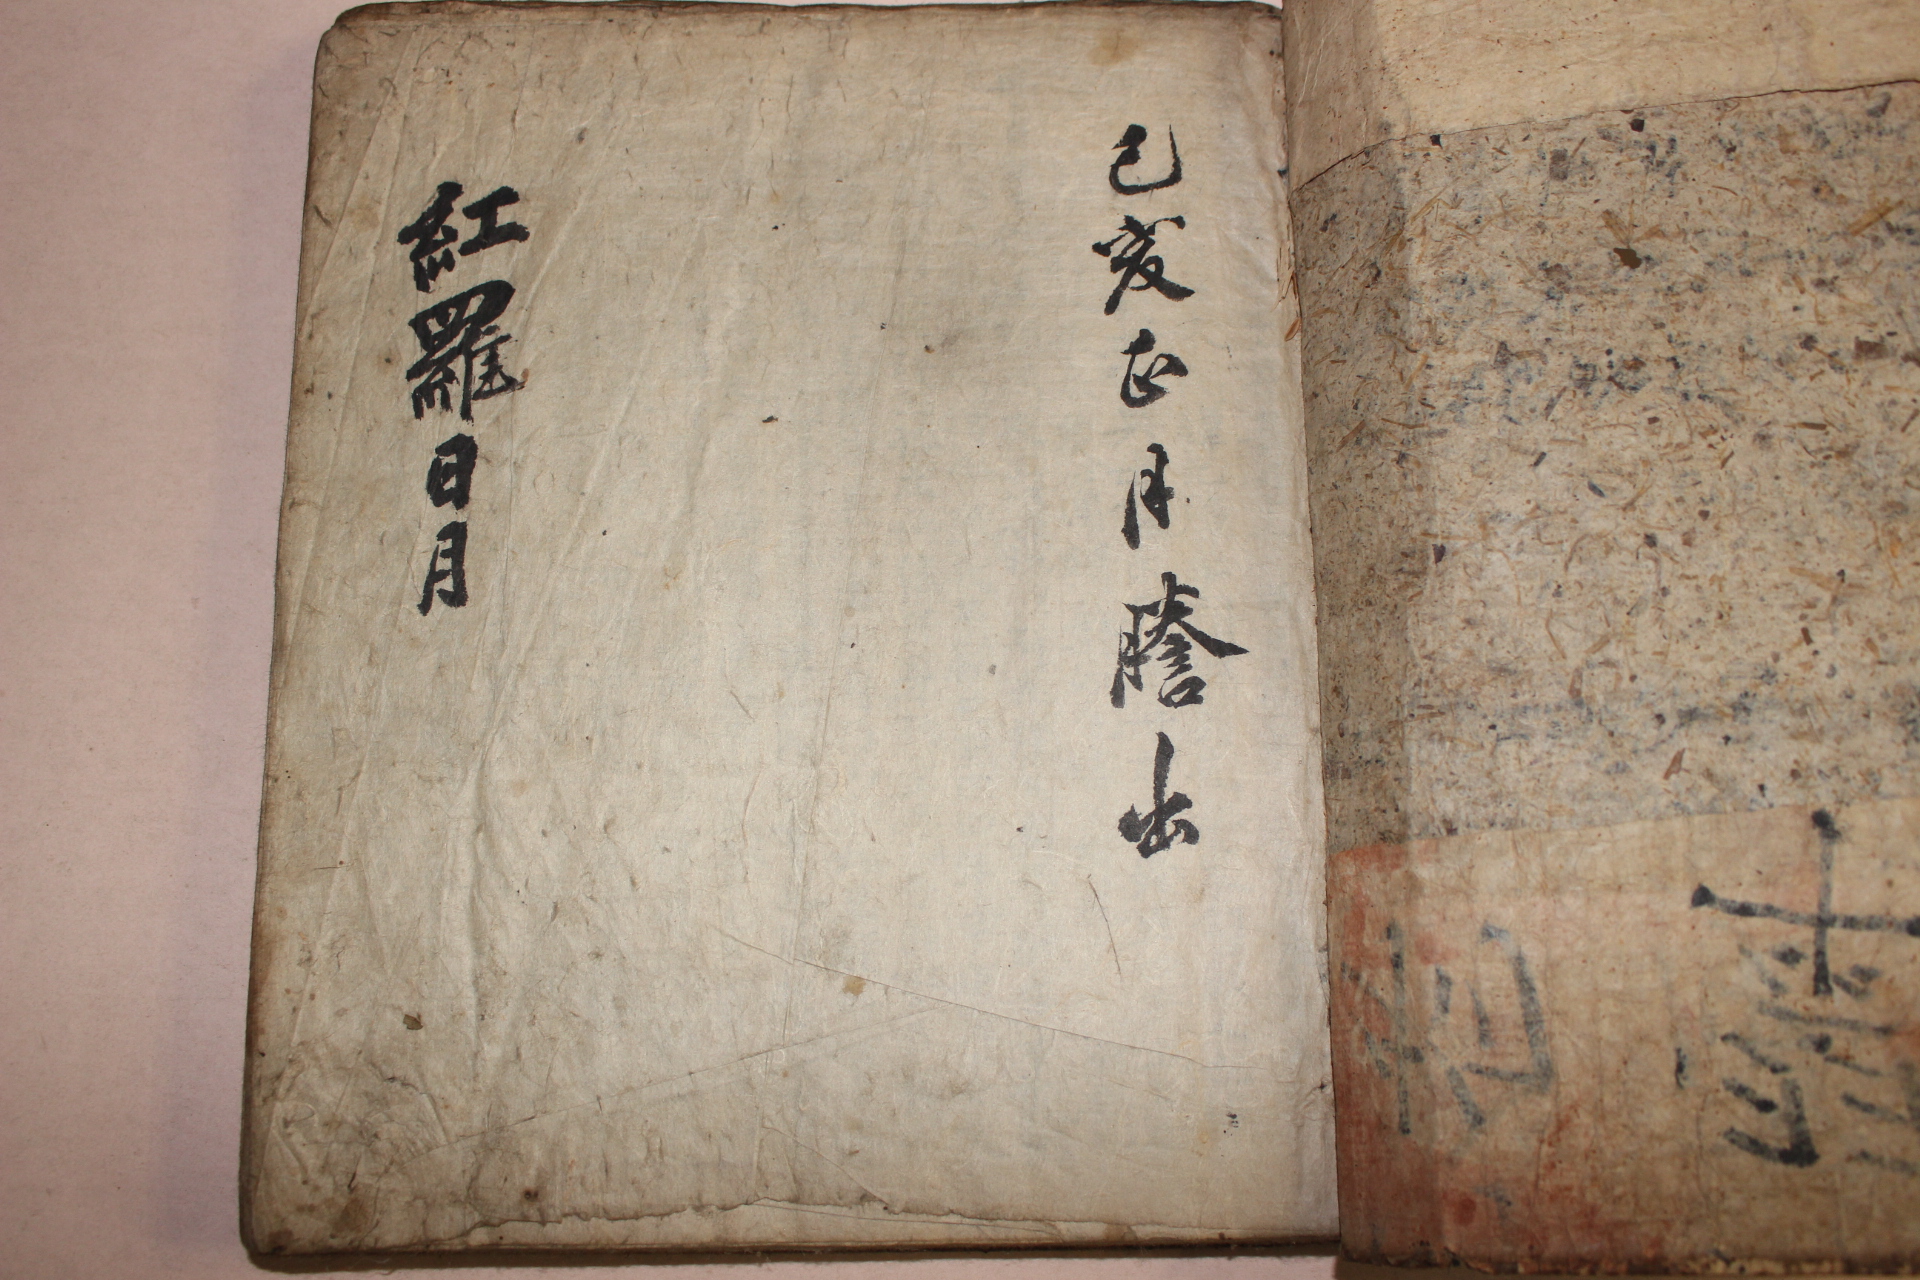 己亥正月謄出
紅羅日月